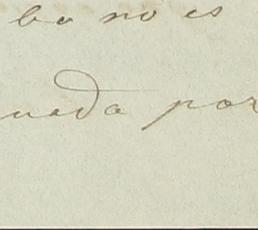 bo no es
nada por